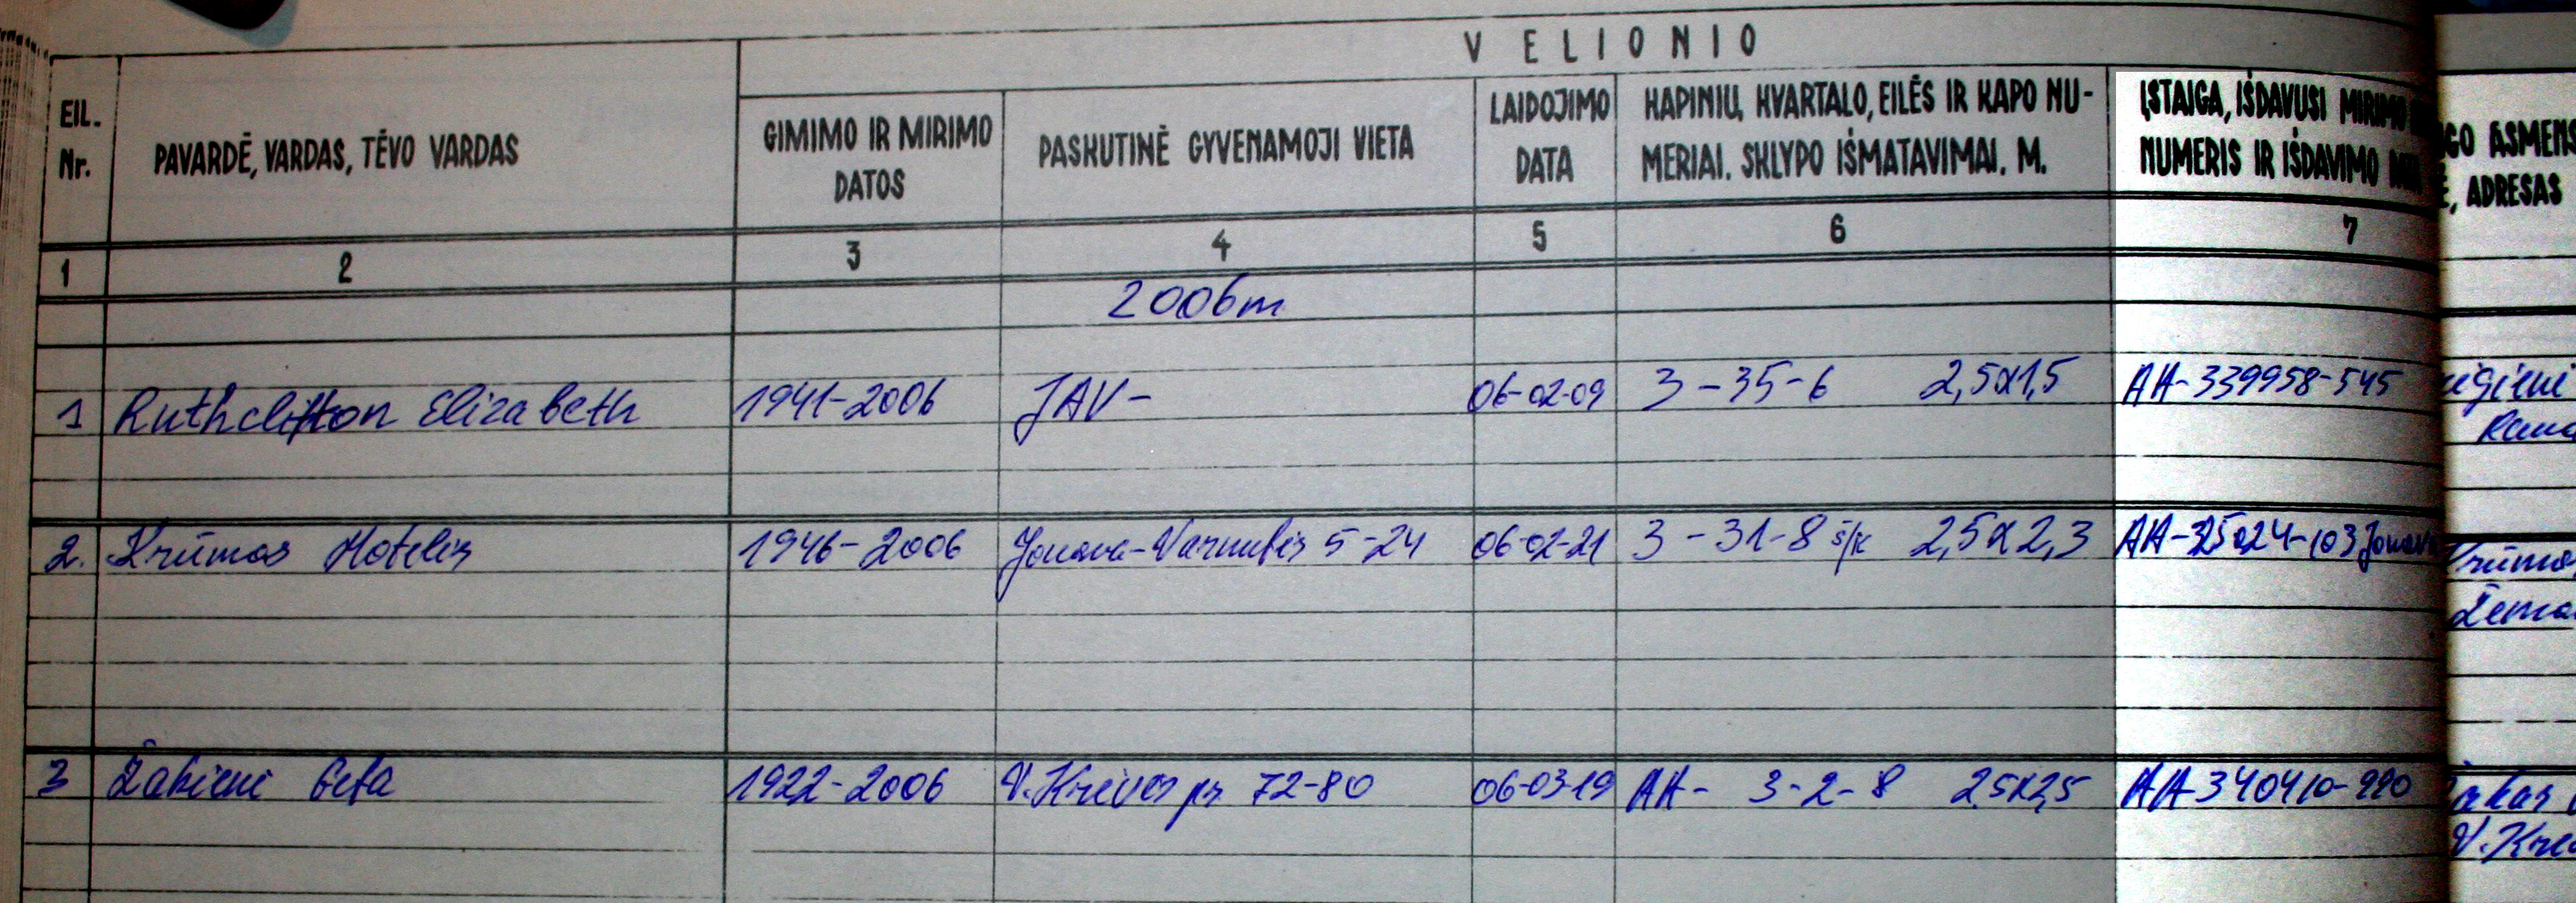 VELIONIO
EIL. Nr.
PAVARDĖ, VARDAS, TĖVO VARDAS
GIMIMO IR MIRIMO DATOS
PASKUTINĖ GYVENAMOJI VIETA
LAIDOJIMO DATA
KAPINIŲ, KVARTALO, EILĖS IR KAPO NU-
MERIAI. SKLYPO IŠMATAVIMAI. M.
ĮSTAIGA, IŠDAVUSI MIRIMO
NUMERIS IR IŠDAVIMO
ASMENS
ADRESAS
1 2 3 4 5 6 7
2006m
1 Ruthclifton Elizabeth 1941-2006 JAV- 06-02-09 3-35-6 2,5x1,5 AA-339958-545
2. Krūmas Hotelis 1946-2006 Jonava-Varnutės 5-24 06-02-21 3-31-8 š/k 2,5x2,3 AA-325024-103
3 Žakienė Geta 1922-2006 V. Krėvės pr. 72-80 06-03-19 AA- 3-2-8 2,5x2,5 AA-340410-990